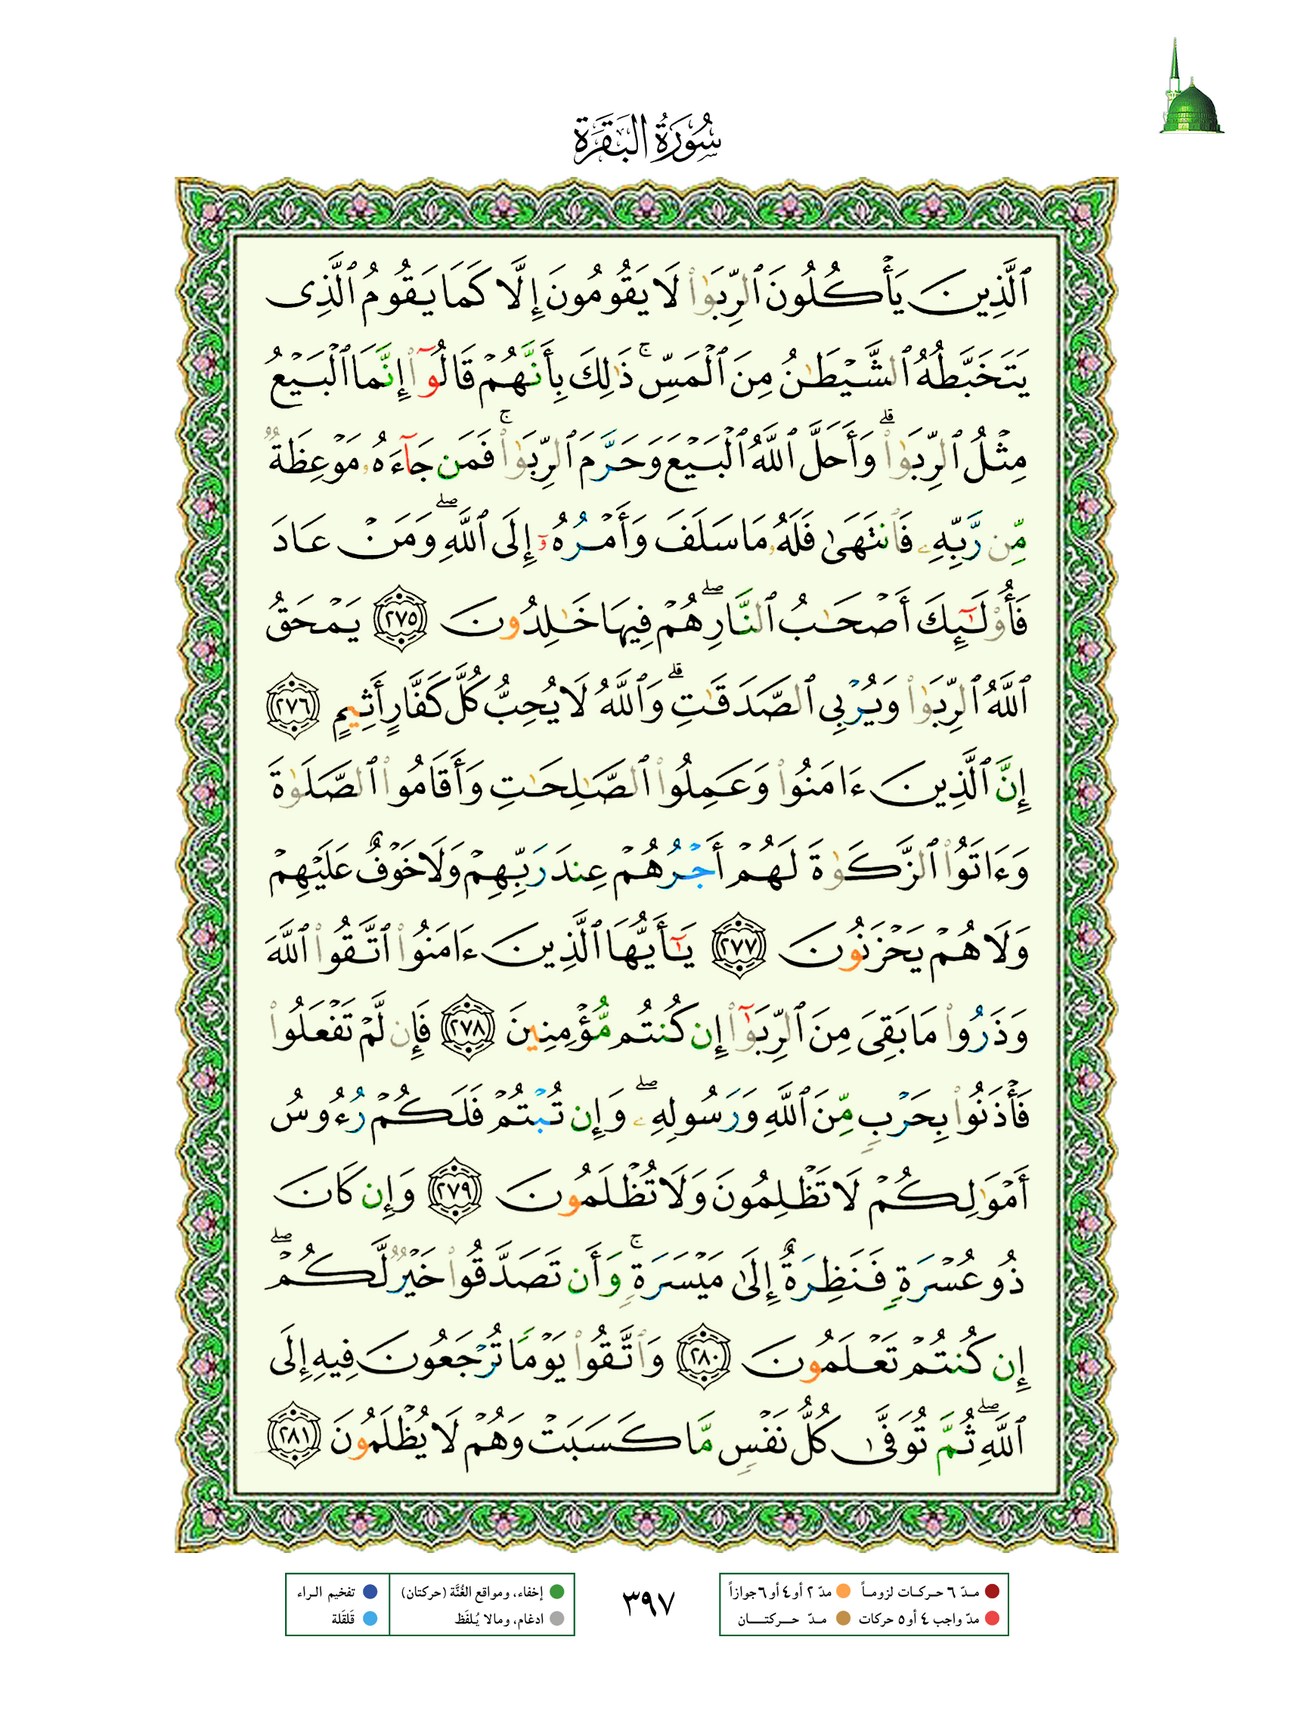 سُورَةُ البَقَرَة
ٱلَّذِينَ يَأۡكُلُونَ ٱلرِّبَوٰاْ لَا يَقُومُونَ إِلَّا كَمَا يَقُومُ ٱلَّذِى
يَتَخَبَّطُهُ ٱلشَّيۡطَٰنُ مِنَ ٱلۡمَسِّۚ ذَٰلِكَ بِأَنَّهُمۡ قَالُوٓاْ إِنَّمَا ٱلۡبَيۡعُ
مِثۡلُ ٱلرِّبَوٰاْۗ وَأَحَلَّ ٱللَّهُ ٱلۡبَيۡعَ وَحَرَّمَ ٱلرِّبَوٰاْۚ فَمَن جَآءَهُۥ مَوۡعِظَةٞ
مِّن رَّبِّهِۦ فَٱنتَهَىٰ فَلَهُۥ مَا سَلَفَ وَأَمۡرُهُۥٓ إِلَى ٱللَّهِۖ وَمَنۡ عَادَ
فَأُوْلَٰٓئِكَ أَصۡحَٰبُ ٱلنَّارِۖ هُمۡ فِيهَا خَٰلِدُونَ ٢٧٥ يَمۡحَقُ
ٱللَّهُ ٱلرِّبَوٰاْ وَيُرۡبِى ٱلصَّدَقَٰتِۗ وَٱللَّهُ لَا يُحِبُّ كُلَّ كَفَّارٍ أَثِيمٍ ٢٧٦
إِنَّ ٱلَّذِينَ ءَامَنُواْ وَعَمِلُواْ ٱلصَّٰلِحَٰتِ وَأَقَامُواْ ٱلصَّلَوٰةَ
وَءَاتَوُاْ ٱلزَّكَوٰةَ لَهُمۡ أَجۡرُهُمۡ عِندَ رَبِّهِمۡ وَلَا خَوۡفٌ عَلَيۡهِمۡ
وَلَا هُمۡ يَحۡزَنُونَ ٢٧٧ يَٰٓأَيُّهَا ٱلَّذِينَ ءَامَنُواْ ٱتَّقُواْ ٱللَّهَ
وَذَرُواْ مَا بَقِىَ مِنَ ٱلرِّبَوٰٓاْ إِن كُنتُم مُّؤۡمِنِينَ ٢٧٨ فَإِن لَّمۡ تَفۡعَلُواْ
فَأۡذَنُواْ بِحَرۡبٖ مِّنَ ٱللَّهِ وَرَسُولِهِۦۖ وَإِن تُبۡتُمۡ فَلَكُمۡ رُءُوسُ
أَمۡوَٰلِكُمۡ لَا تَظۡلِمُونَ وَلَا تُظۡلَمُونَ ٢٧٩ وَإِن كَانَ
ذُو عُسۡرَةٖ فَنَظِرَةٌ إِلَىٰ مَيۡسَرَةٖۚ وَأَن تَصَدَّقُواْ خَيۡرٞ لَّكُمۡۖ
إِن كُنتُمۡ تَعۡلَمُونَ ٢٨٠ وَٱتَّقُواْ يَوۡمٗا تُرۡجَعُونَ فِيهِ إِلَى
ٱللَّهِۖ ثُمَّ تُوَفَّىٰ كُلُّ نَفۡسٖ مَّا كَسَبَتۡ وَهُمۡ لَا يُظۡلَمُونَ ٢٨١
مدّ ٦ حركات لزوماً مدّ ٢ أو ٤ أو ٦ جوازاً
مدّ واجب ٤ أو ٥ حركات مدّ حركتان
٣٩٧
إخفاء، ومواقع الغُنَّة (حركتان) تفخيم الراء
ادغام، ومالا يُلفَظ قلقلة